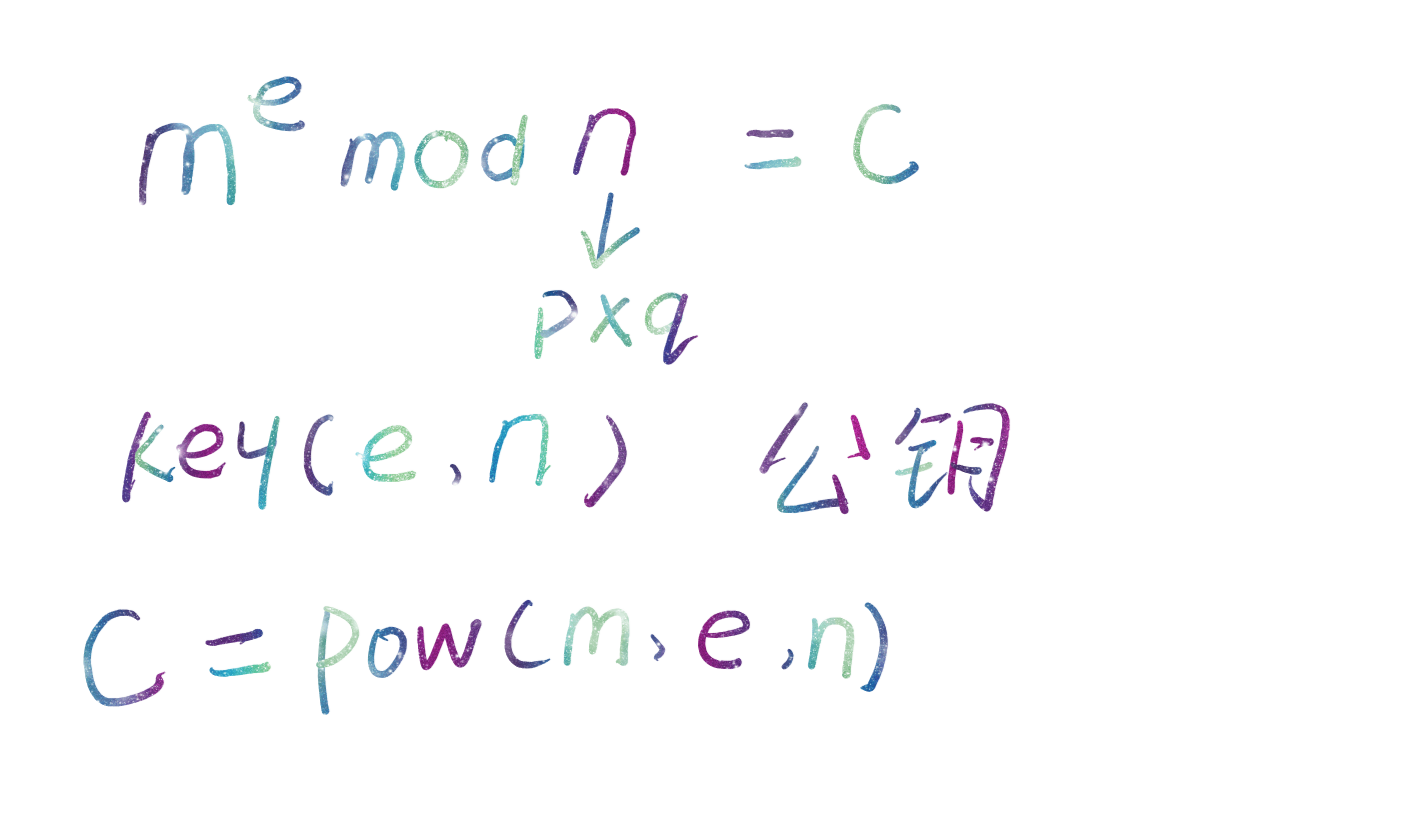 m^e mod n = C
↓
p×q
key(e,n) 公钥
C = pow(m,e,n)